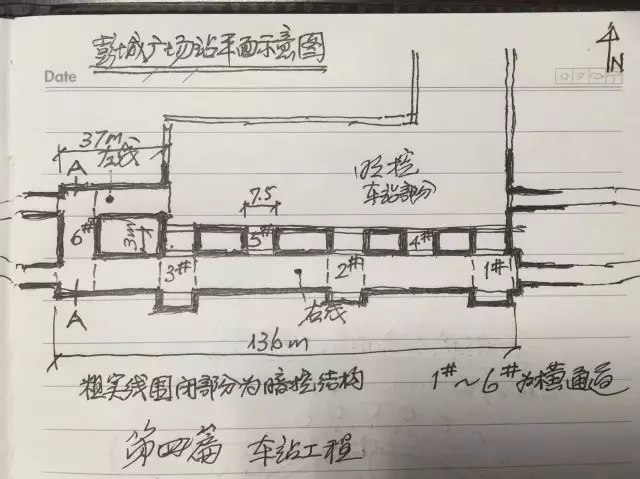 彭城广场站平面示意图
N
Date
37m
左线
A
7.5
明挖
车站部分
6#
3m
5#
4#
3#
2#
1#
A
右线
136m
粗实线围闭部分为暗挖结构
1#~6#为横通道
第四篇 车站工程